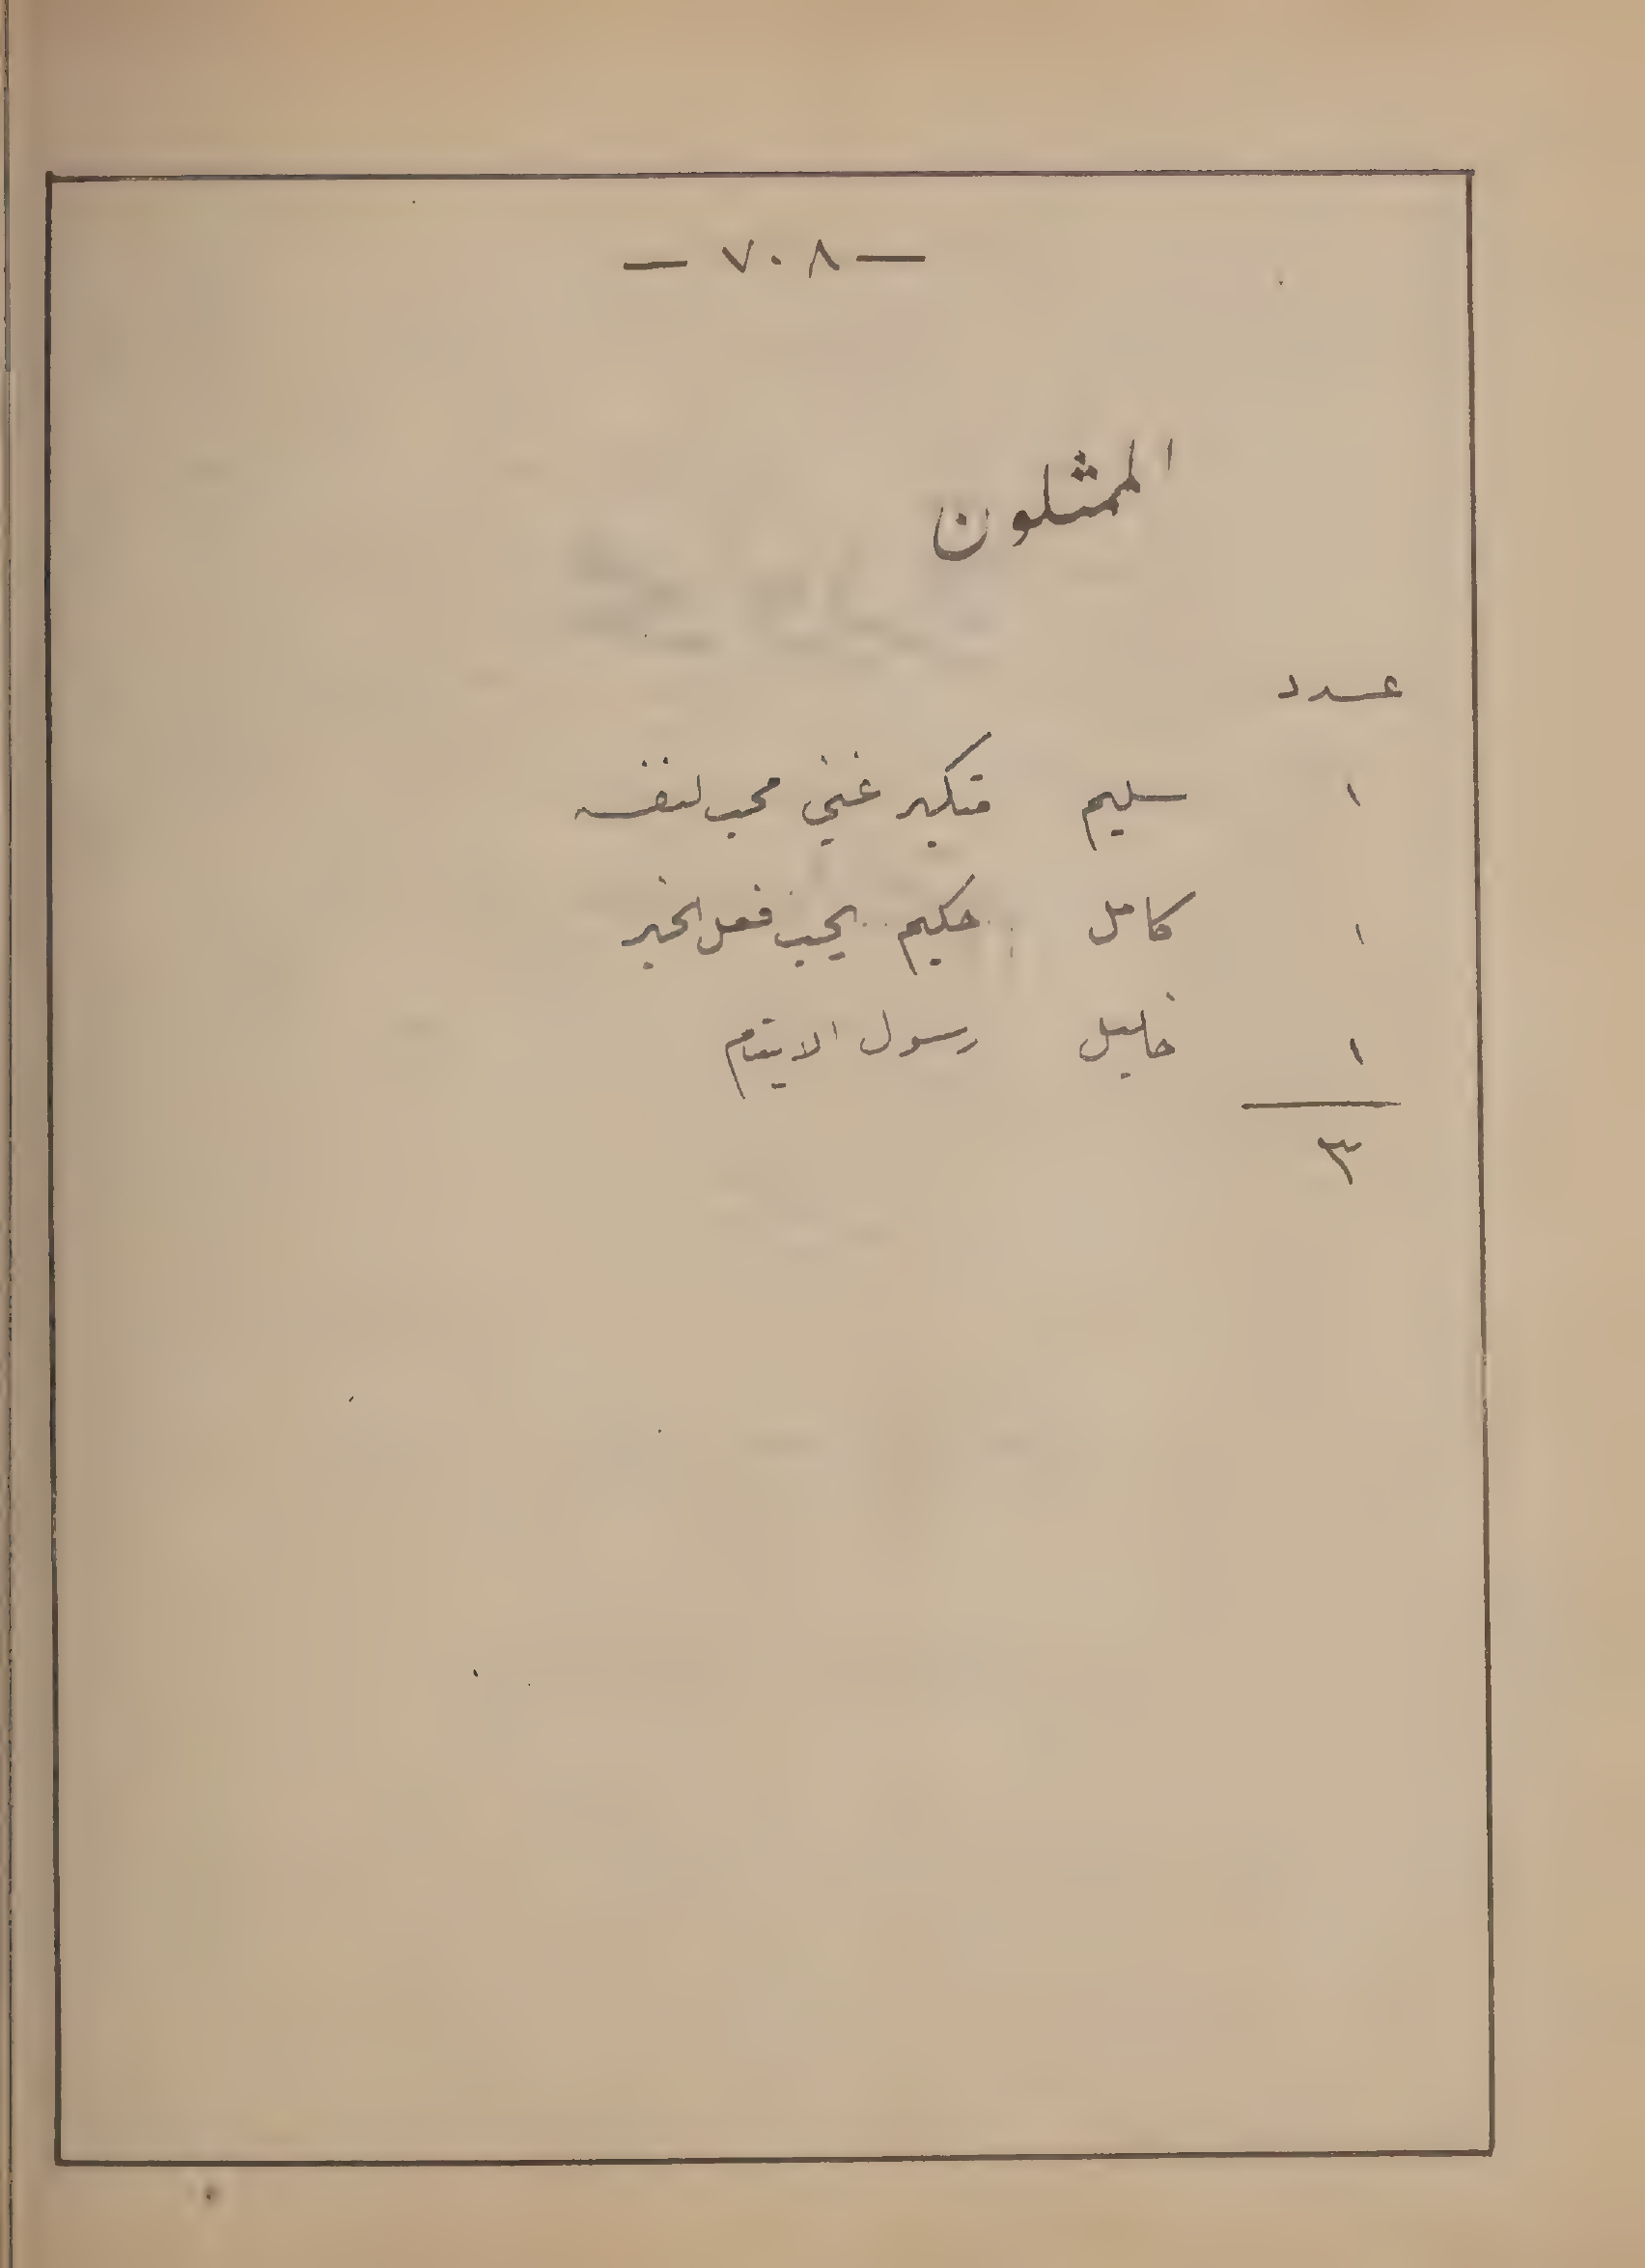 — ٧٠٨ —
الممثلون
عدد
١ سليم متكبر غني محب لنفسه
١ كامل حكيم يحب فعل الخير
١ خليل رسول الايتام
٣